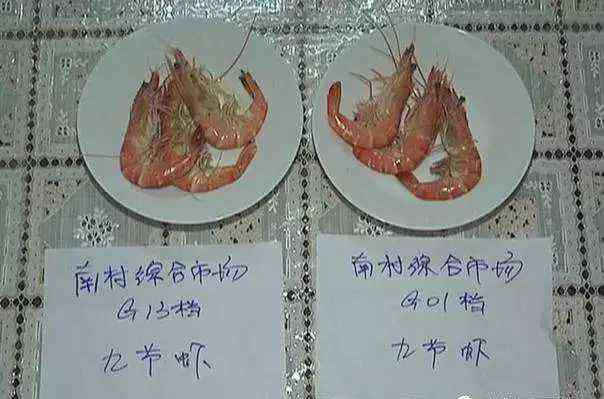 南村综合市场
G13档
九节虾
南村综合市场
G01档
九节虾